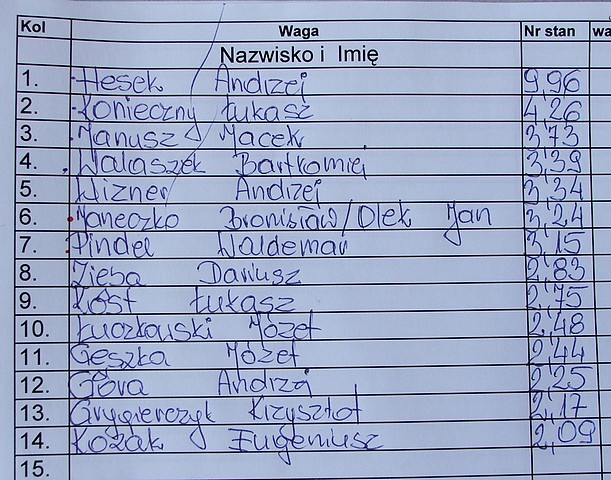 Kol Waga Nr stan wa
Nazwisko i Imię
1. Hesek Andrzej 9,96
2. Konieczny Łukasz 4,26
3. Janusz Jacek 3,73
4. Walaszek Bartłomiej 3,39
5. Wizner Andrzej 3,34
6. Janeczko Bronisław/Olek Jan 3,24
7. Pindel Waldemar 3,15
8. Zięba Dariusz 2,83
9. Kost Łukasz 2,75
10. Łuczkowski Józef 2,48
11. Geszka Józef 2,44
12. Góra Andrzej 2,25
13. Grygierczyk Krzysztof 2,17
14. Kozak Eugeniusz 2,09
15.